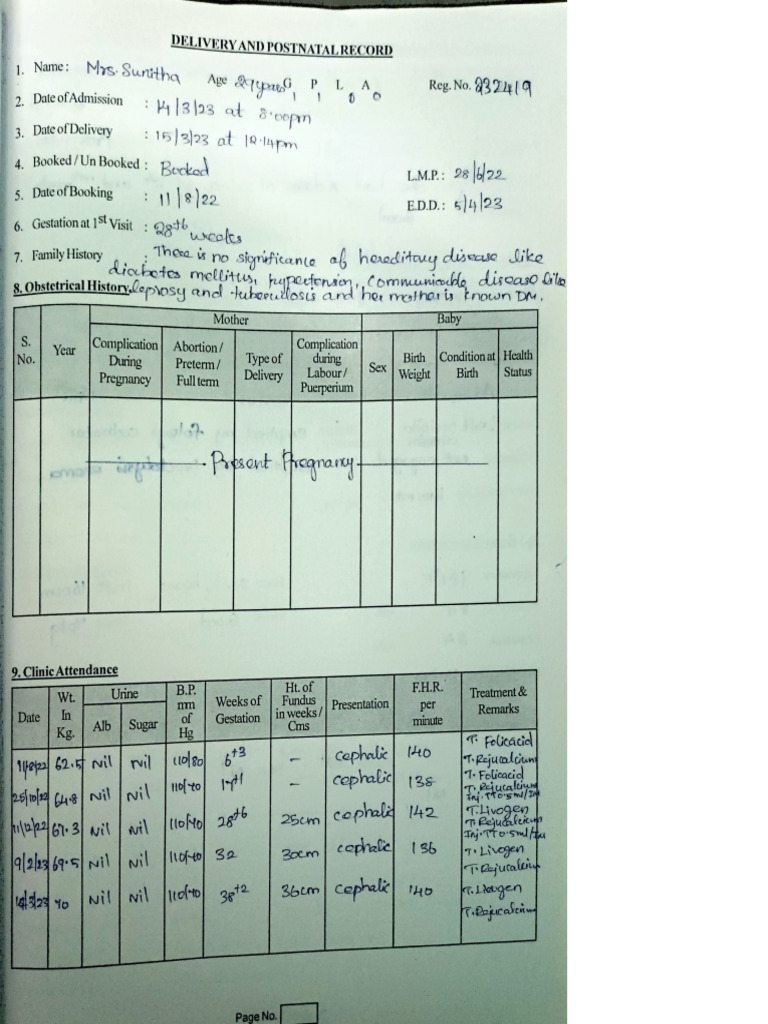 DELIVERY AND POSTNATAL RECORD
1. Name : Mrs. Sunitha Age 29years G1 P1 L0 A0 Reg. No. 232419
2. Date of Admission : 14/3/23 at 8:00pm
3. Date of Delivery : 15/3/23 at 12.14pm
4. Booked / Un Booked : Booked L.M.P. : 28/6/22
5. Date of Booking : 11/8/22 E.D.D. : 5/4/23
6. Gestation at 1st Visit : 28+6 weeks
7. Family History : There is no significance of hereditary disease like
diabetes mellitus, hypertension, Communicable disease like
8. Obstetrical History leprosy and tuberculosis and her mother is known DM.
Mother Baby
S. No. Year Complication During Pregnancy Abortion / Preterm / Full term Type of Delivery Complication during Labour / Puerperium Sex Birth Weight Condition at Birth Health Status
Present Pregnancy
9. Clinic Attendance
Date Wt. In Kg. Urine Alb Sugar B.P. mm of Hg Weeks of Gestation Ht. of Fundus in weeks / Cms Presentation F.H.R. per minute Treatment & Remarks
11/8/22 62.5 Nil Nil 110/80 6+3 - cephalic 140 T. Folicacid T. Rejucalcium
25/10/22 64.8 Nil Nil 110/70 17+1 - cephalic 138 T. Folicacid T. Rejucalcium Inj. TT 0.5ml/IM
11/12/22 67.3 Nil Nil 110/70 28+6 25cm cephalic 142 T. Livogen T. Rejucalcium Inj. TT 0.5ml/IM
9/2/23 69.5 Nil Nil 110/70 32 30cm cephalic 136 T. Livogen T. Rejucalcium
14/3/23 70 Nil Nil 110/70 38+2 36cm cephalic 140 T. Livogen T. Rejucalcium
Page No.